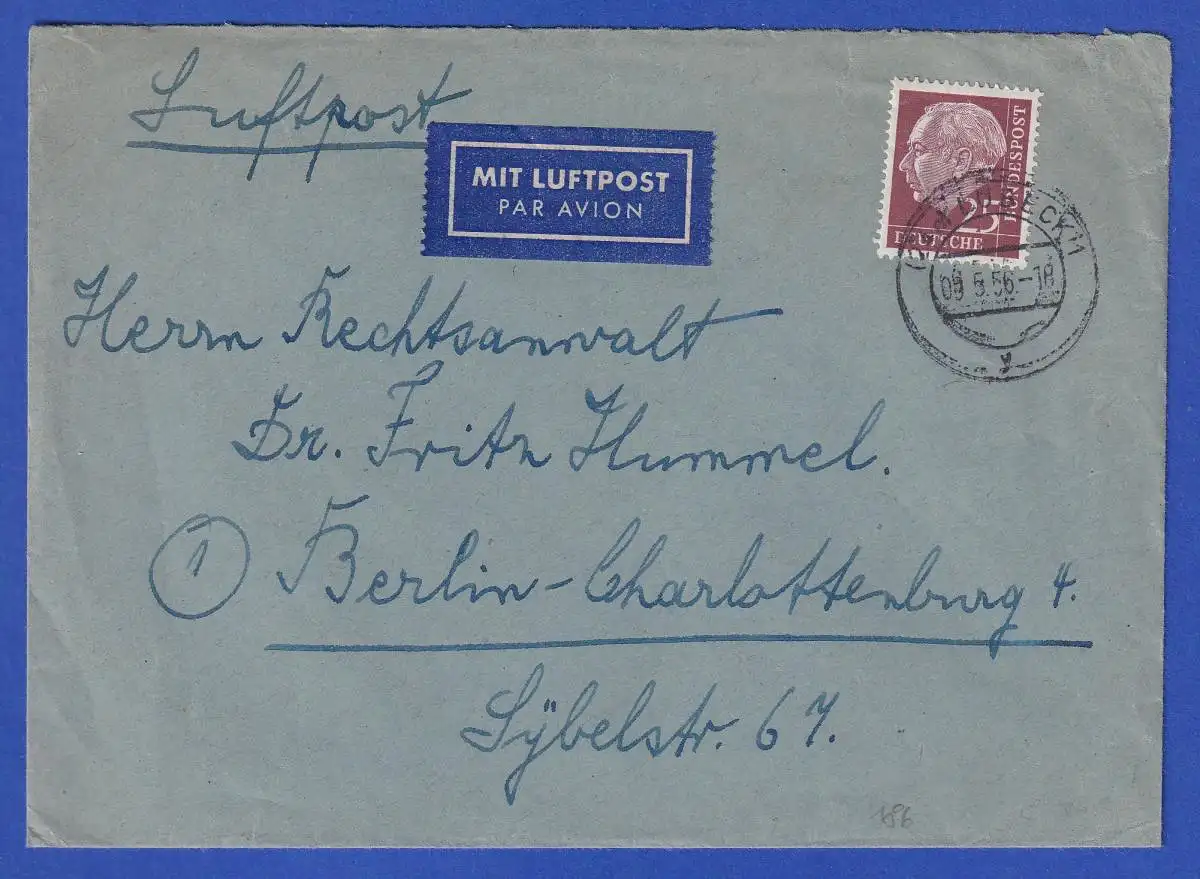 Luftpost
MIT LUFTPOST
PAR AVION
25
BUNDESPOST
DEUTSCHE
56.-18
Herrn Rechtsanwalt
Dr. Fritz Hummel.
1 Berlin-Charlottenburg 4.
Sÿbelstr. 67.
186